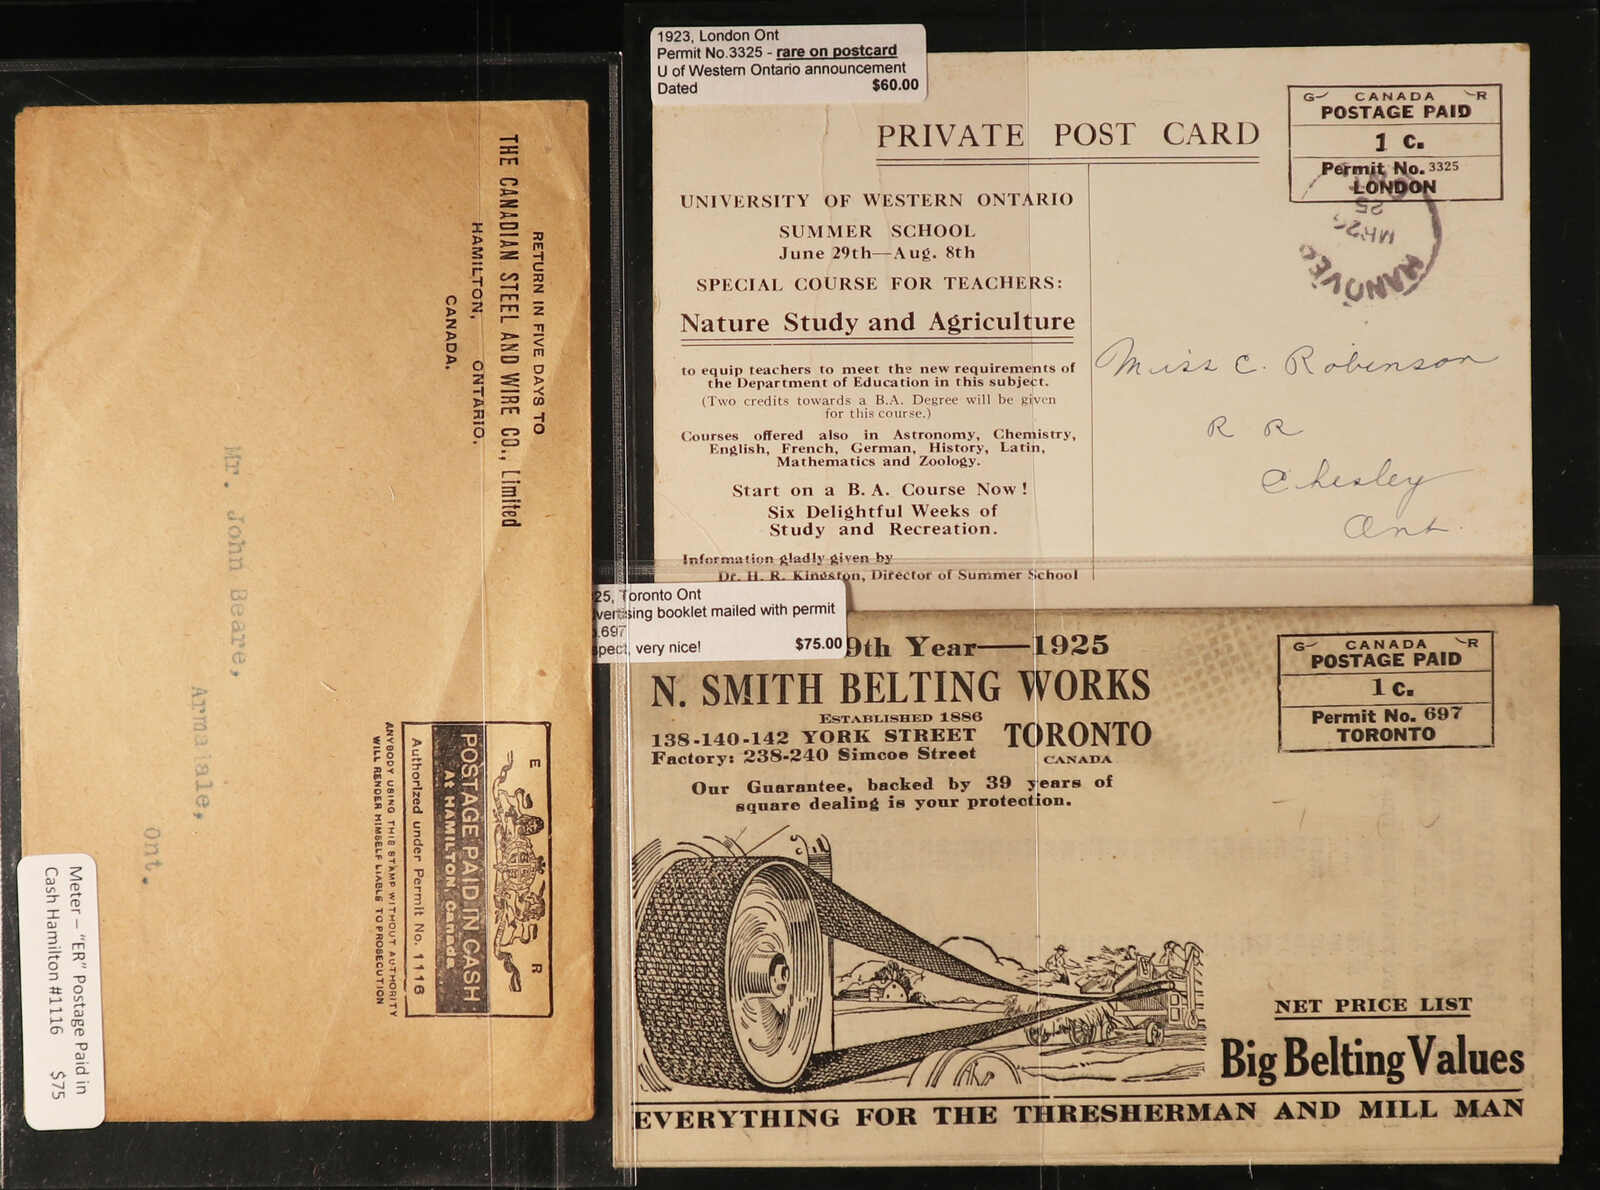 RETURN IN FIVE DAYS TO
THE CANADIAN STEEL AND WIRE CO., Limited
HAMILTON, ONTARIO.
CANADA.
Mr. John Beare,
Ont.
E R
POSTAGE PAID IN CASH
At HAMILTON, Canada
Authorized under Permit No. 1116
ANYBODY USING THIS STAMP WITHOUT AUTHORITY
WILL RENDER HIMSELF LIABLE TO PROSECUTION
Meter – "ER" Postage Paid in
Cash Hamilton #1116 $75
1923, London Ont
Permit No.3325 - rare on postcard
U of Western Ontario announcement
Dated $60.00
PRIVATE POST CARD
G CANADA R
POSTAGE PAID
1 C.
Permit No. 3325
LONDON
HANOVER
25
UNIVERSITY OF WESTERN ONTARIO
SUMMER SCHOOL
June 29th—Aug. 8th
SPECIAL COURSE FOR TEACHERS:
Nature Study and Agriculture
to equip teachers to meet the new requirements of
the Department of Education in this subject.
(Two credits towards a B.A. Degree will be given
for this course.)
Courses offered also in Astronomy, Chemistry,
English, French, German, History, Latin,
Mathematics and Zoology.
Start on a B. A. Course Now!
Six Delightful Weeks of
Study and Recreation.
Information gladly given by
Dr. H. R. Kingston, Director of Summer School
Miss C. Robinson
R R
Chesley
Ont.
25, Toronto Ont
vertising booklet mailed with permit
.697
spect, very nice! $75.00
9th Year—1925
N. SMITH BELTING WORKS
ESTABLISHED 1886
138-140-142 YORK STREET TORONTO
Factory: 238-240 Simcoe Street CANADA
Our Guarantee, backed by 39 years of
square dealing is your protection.
G CANADA R
POSTAGE PAID
1 C.
Permit No. 697
TORONTO
NET PRICE LIST
Big Belting Values
EVERYTHING FOR THE THRESHERMAN AND MILL MAN